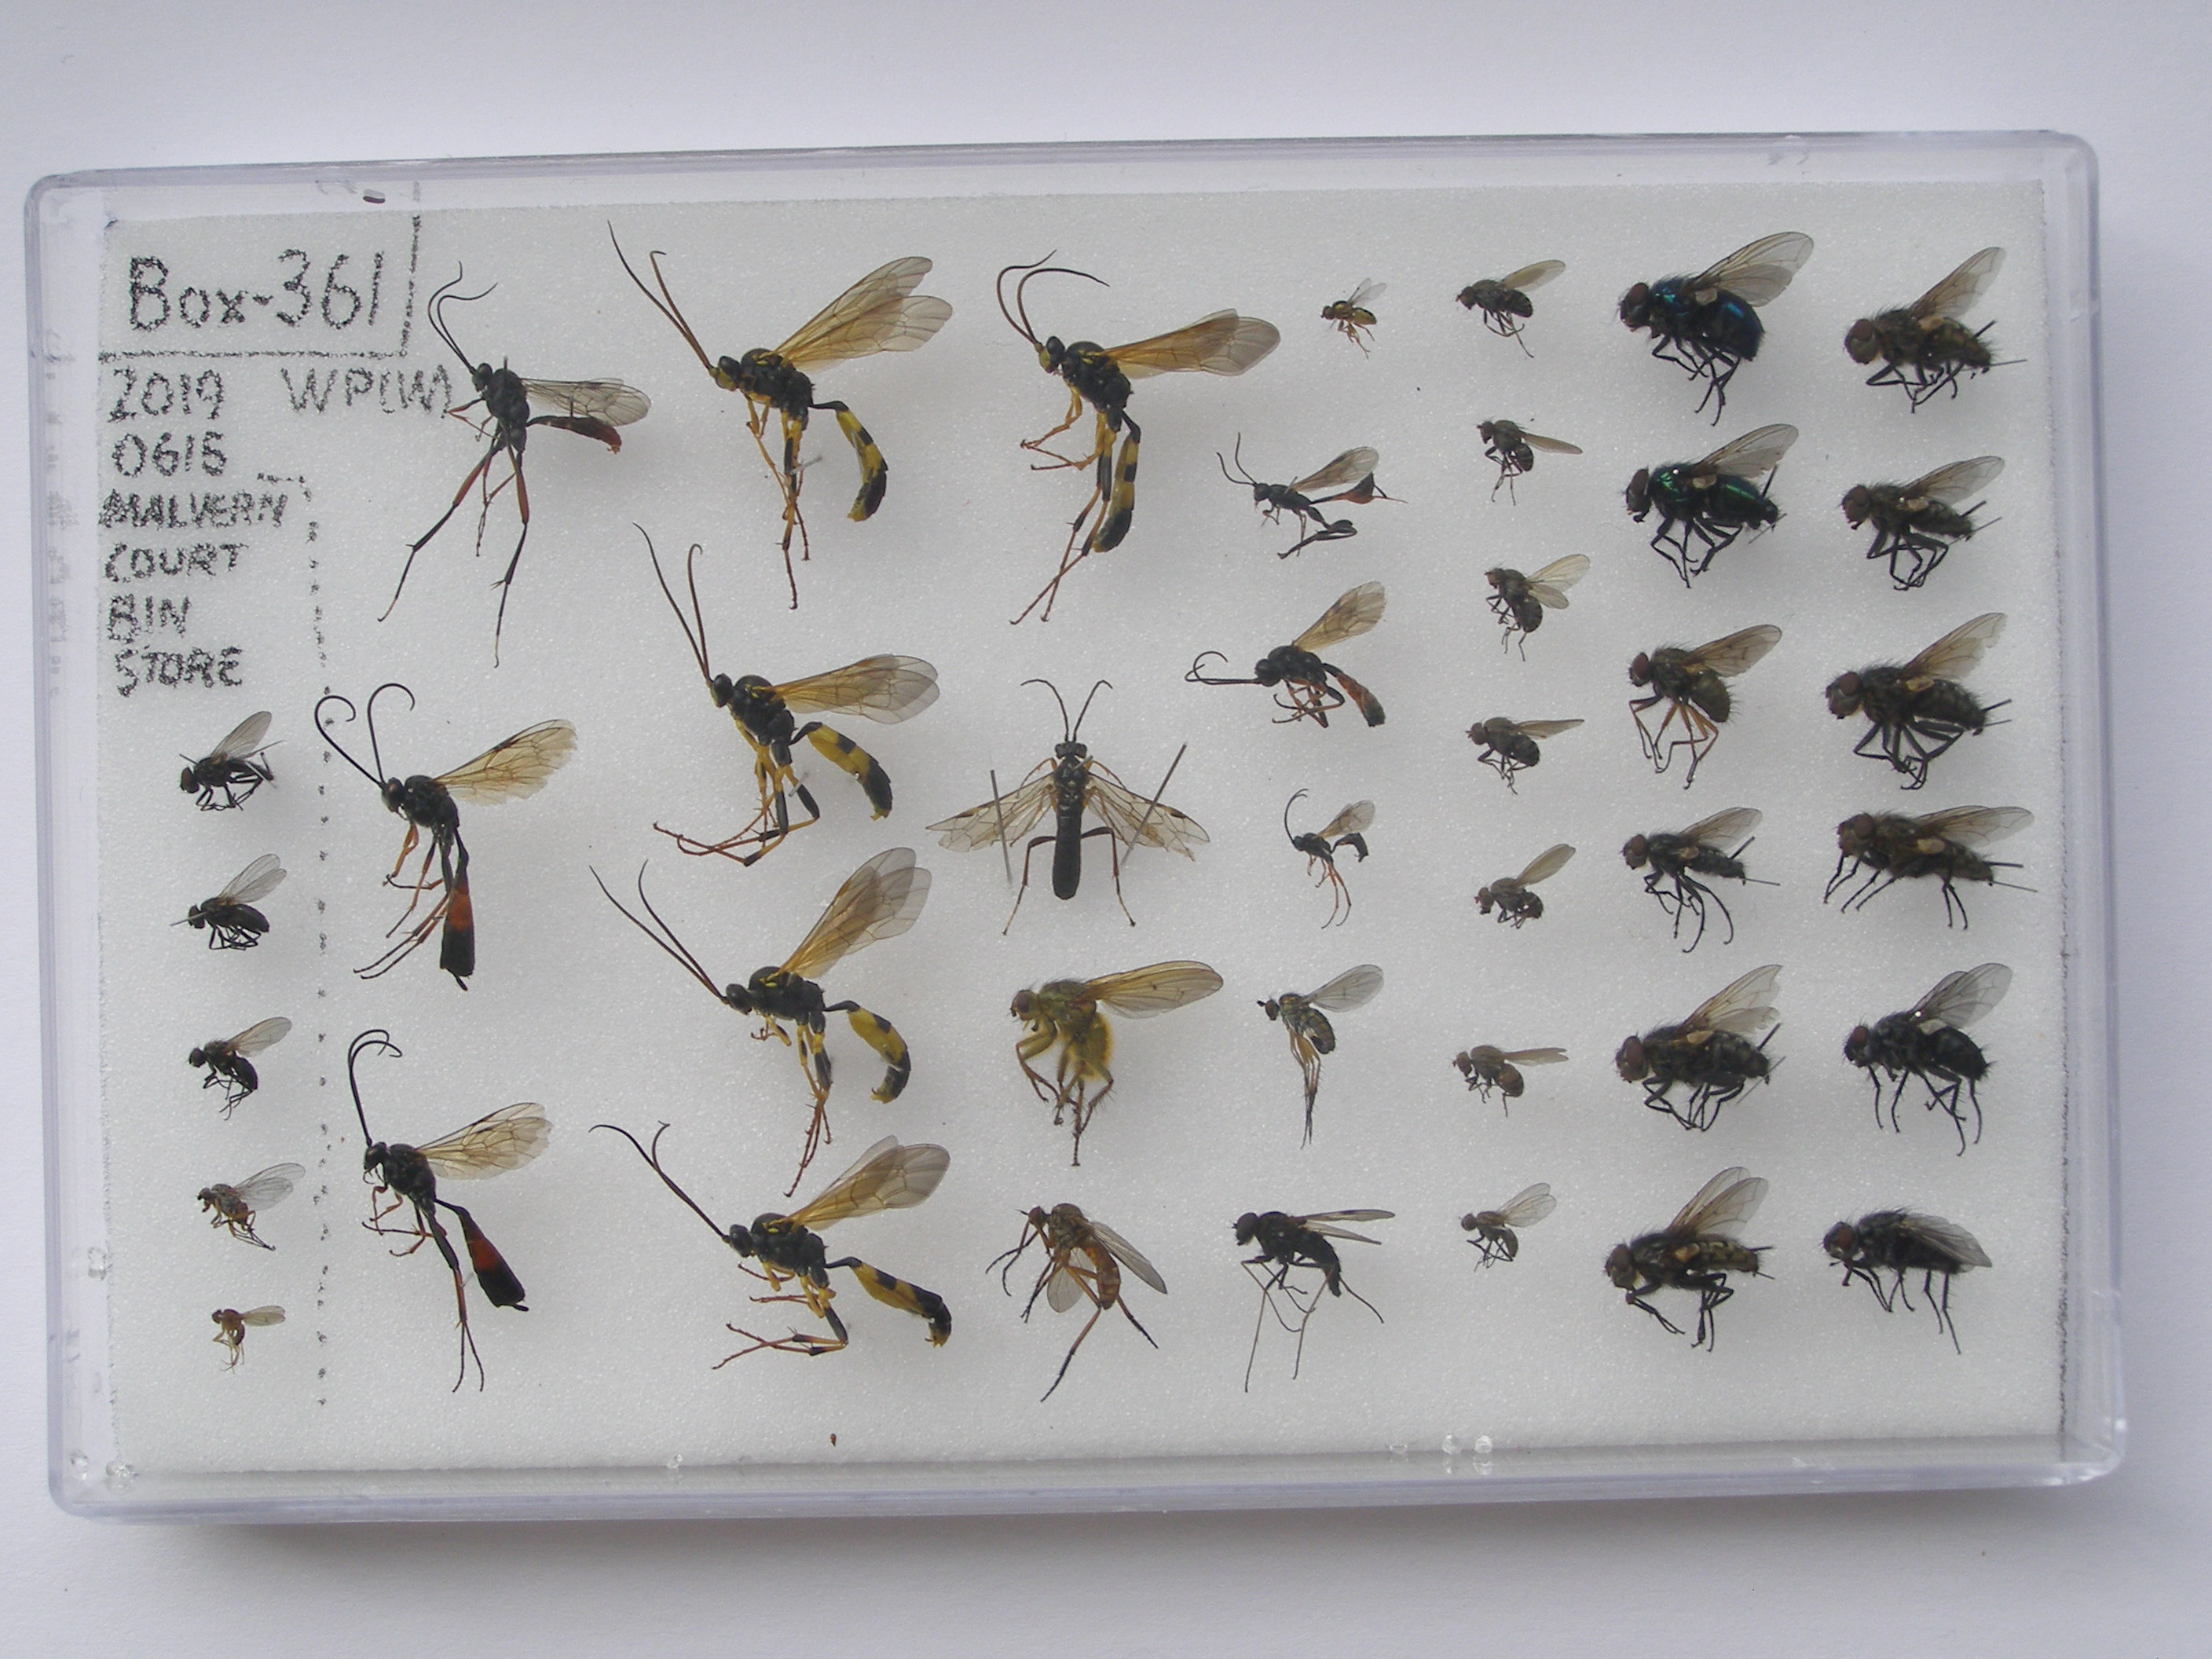 Box-361
2019 WP(W)
0615
MALVERN
COURT
BIN
STORE